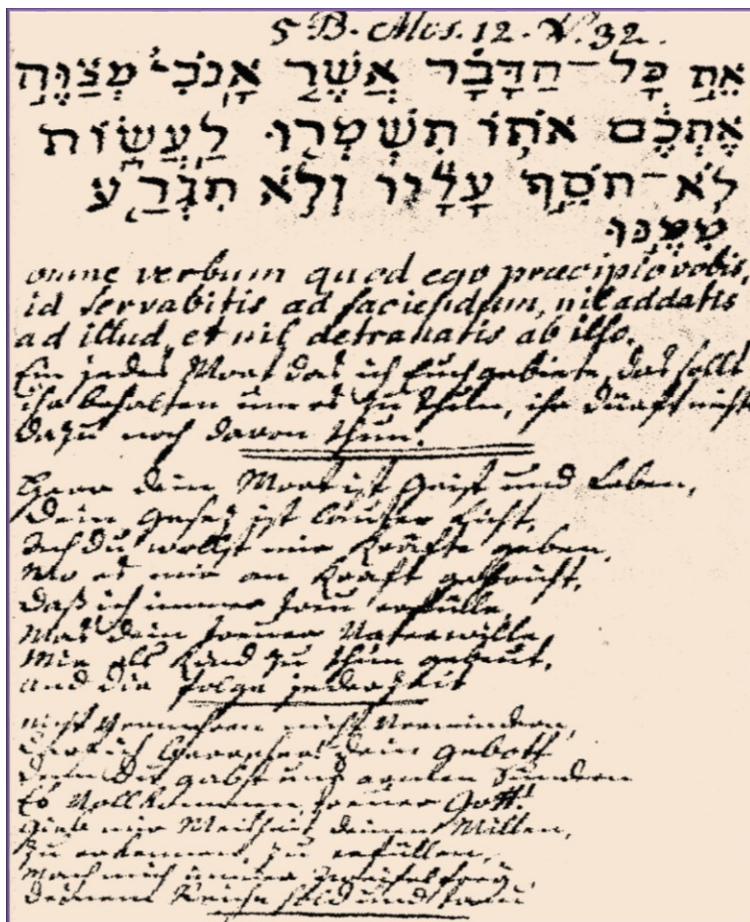 5 B. Mos. 12. V. 32.
אֵת כָּל־הַדָּבָר אֲשֶׁר אָנֹכִי מְצַוֶּה
אֶתְכֶם אֹתוֹ תִשְׁמְרוּ לַעֲשׂוֹת
לֹא־תֹסֵף עָלָיו וְלֹא תִגְרַע
מִמֶּנּוּ
omne verbum quod ego præcipio vobis,
id servabitis ad faciendum, nil addatis
ad illud, et nil detrahatis ab illo.
Ein jedes Wort das ich Euch gebiete, das sollt
ihr behalten um es zu thun, ihr dürft nichts
dazu noch davon thun.
Herr dein Wort ist Geist und Leben,
Dein Gesez ist lauter Licht,
Ach du wollst mir Kräfte geben,
Wo es mir an Kraft gebricht,
Daß ich immer treu erfülle,
Was dein treuer Vaterwille
Mir als Kind zu thun gebeut,
und die folge jederzeit
nicht Vermehren nicht Vermindern,
dein gebott
denn Du gabst uns armen Sündern
Es Vollkommen treuer Gott!
Gieb mir Weisheit deinen Willen,
Zu erkennen, zu erfüllen,
Mach mich immer
deinem Reiche hold und treu